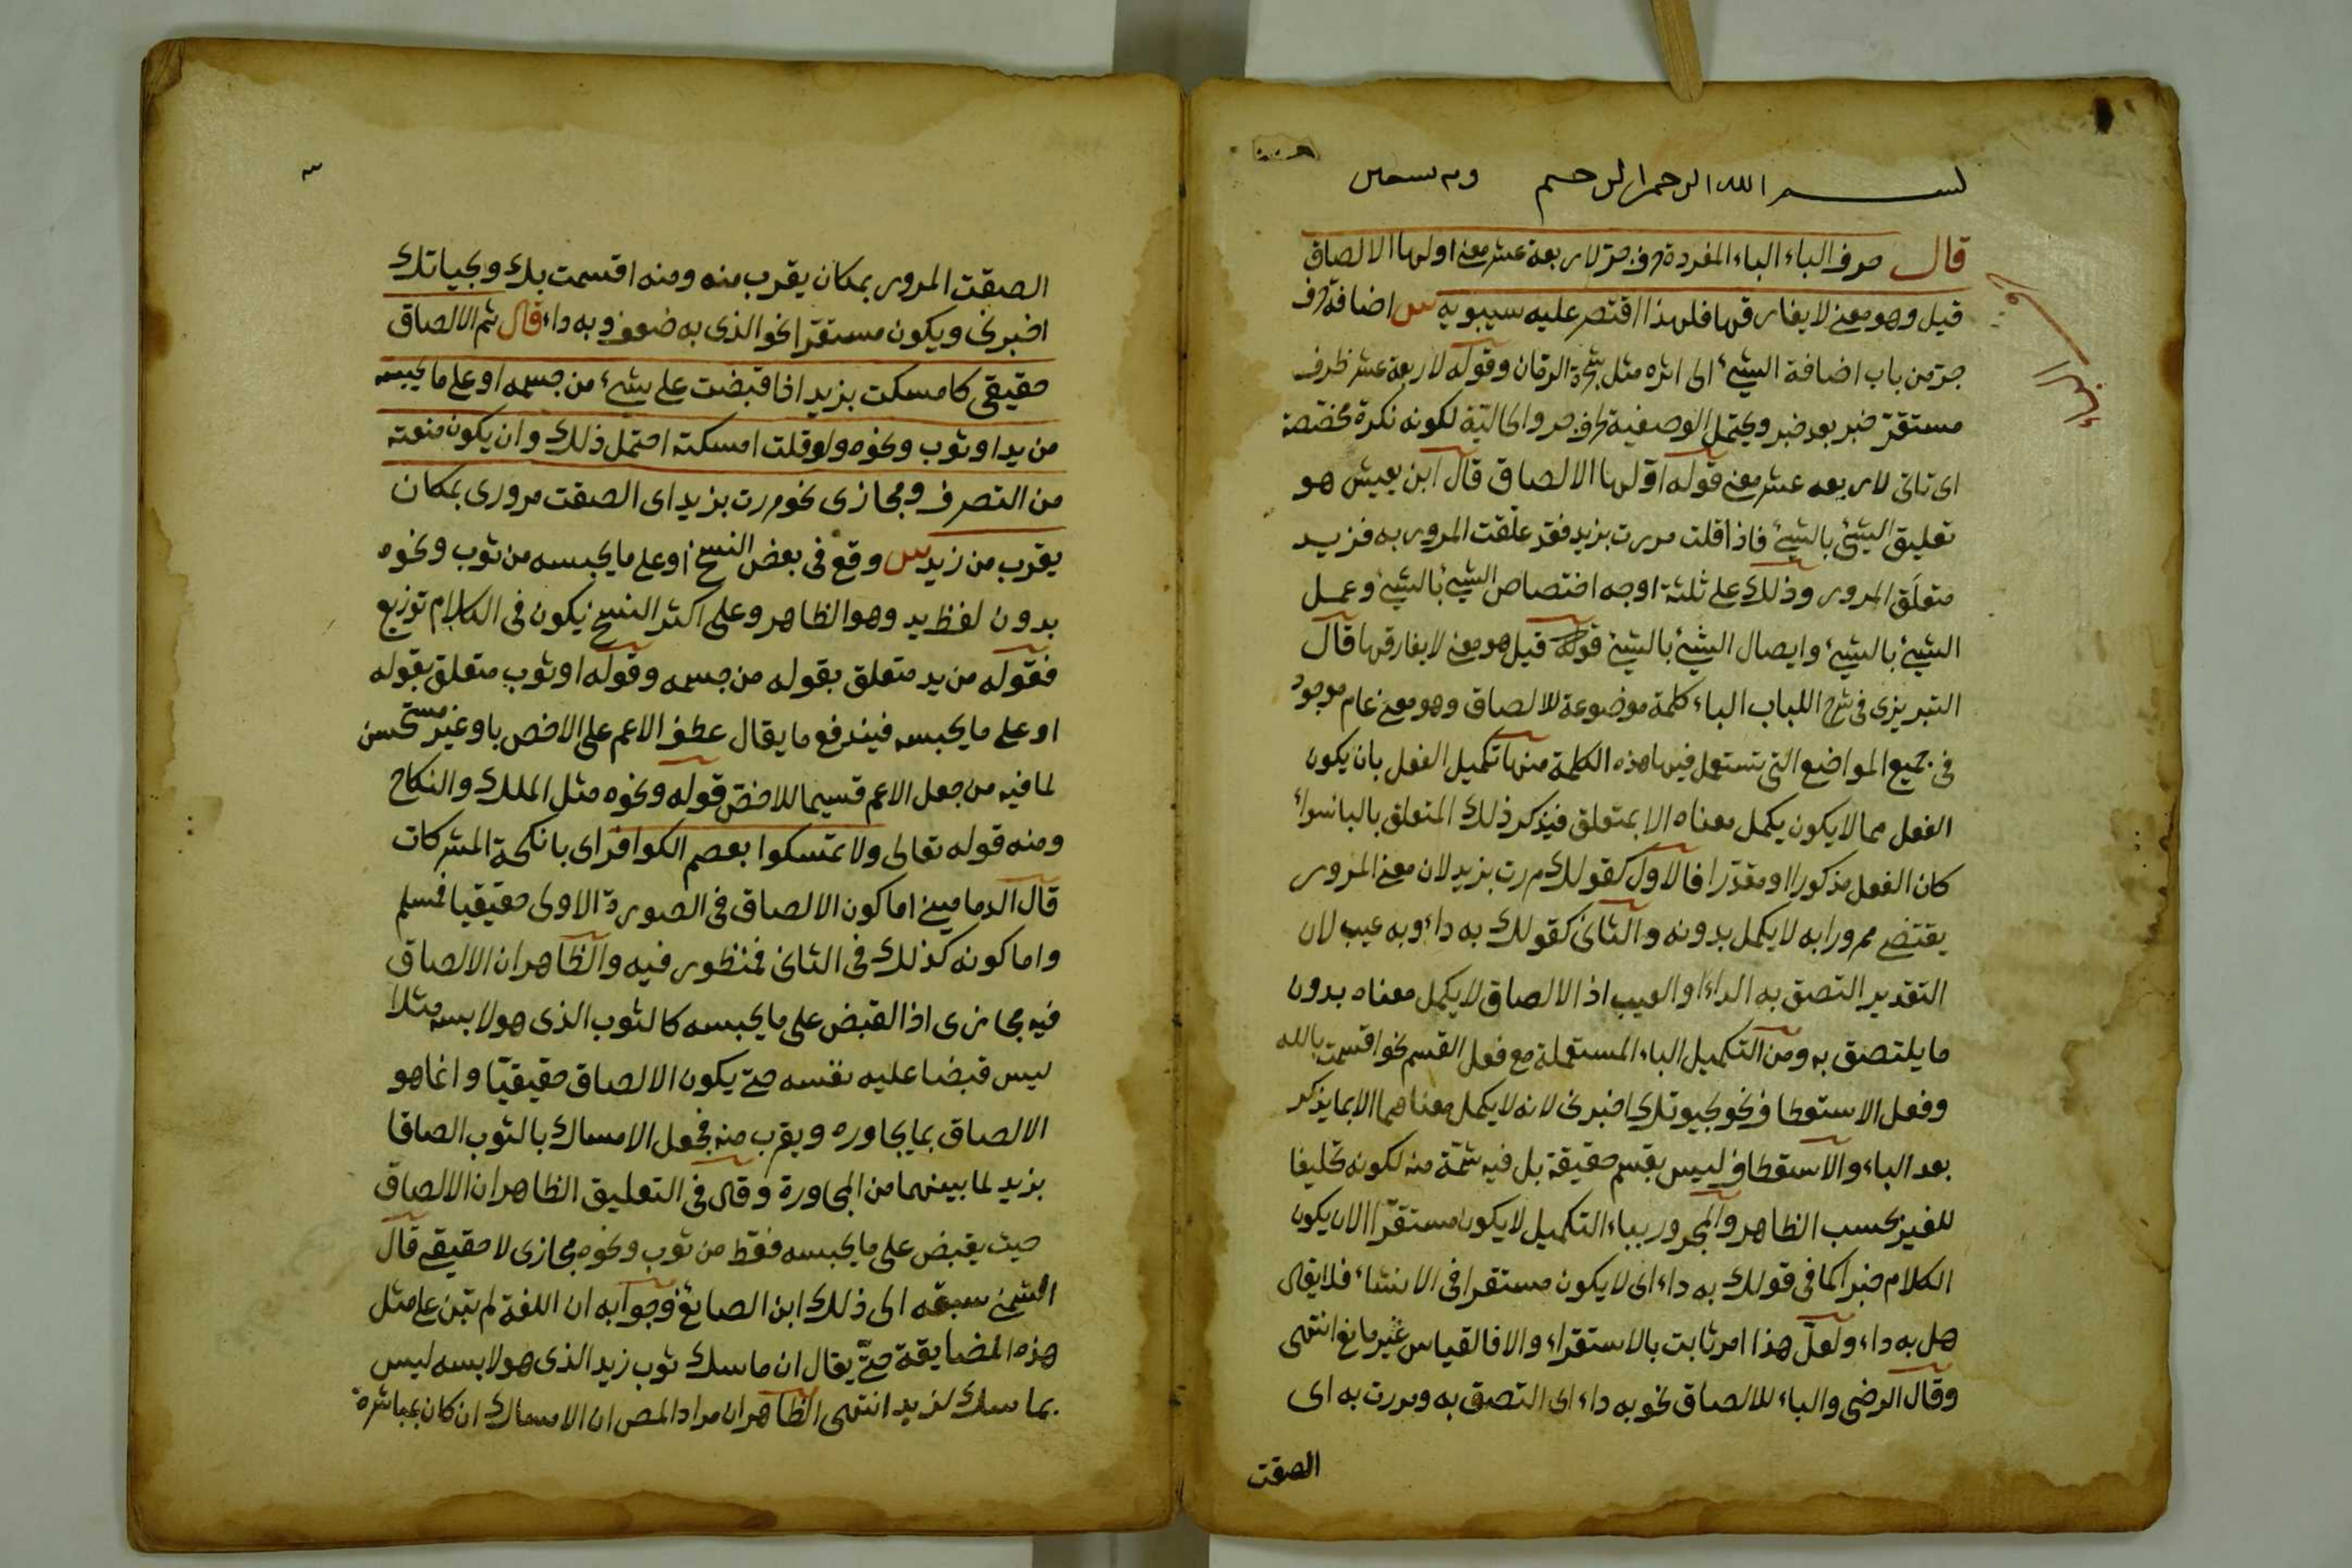 بسم الله الرحمن الرحيم وبه نستعين
قال حرف الباء الباء المفردة حرف جر لاربعة عشر معنى اولها الالصاق
قيل وهو معنى لا يفارقها فلهذا اقتصر عليه سيبويه ش اضافة حرف
جر من باب اضافة الشيئ الى اثره مثل شجرة الرمان وقوله لاربعة عشر ظرف
مستقر خبر بعد خبر ويحتمل الوصفية لحرف جر والحالية لكونه نكرة مختصة
اى تاتى لاربعه عشر معنى قوله اولها الالصاق قال ابن يعيش هو
تعليق الشيئ بالشيئ فاذا قلت مررت بزيد فقد علقت المرور به فزيد
متعلق المرور وذلك على ثلثة اوجه اختصاص الشيئ بالشيئ وعمل
الشيئ بالشيئ وايصال الشيئ بالشيئ قوله قيل هو معنى لا يفارقها قال
التبريزى فى شرح اللباب الباء كلمة موضوعة للالصاق وهو معنى عام موجود
فى جميع المواضع التى تستعمل فيها هذه الكلمة منها تكميل الفعل بان يكون
الفعل مما لا يكون يكمل معناه الا بمتعلق فيذكر ذلك المتعلق بالباء سواء
كان الفعل مذكورا او مقدرا فالاول كقولك مررت بزيد لان معنى المرور
يقتضى ممرورا به لا يكمل بدونه والثانى كقولك به داء وبه عيب لان
التقدير التصق به الداء او العيب اذ الالصاق لا يكمل معناه بدون
ما يلتصق به ومن التكميل الباء المستعملة مع فعل القسم نحو اقسمت بالله
وفعل الاستعطاف نحو بحيوتك اخبرنى لانه لا يكمل معناهما الا بما يذكر
بعد الباء والاستعطاف ليس بقسم حقيقة بل فيه شمة منه لكونه تحليفا
للغير بحسب الظاهر والمجرور بباء التكميل لا يكون مستقرا الا ان يكون
الكلام خبرا كما فى قولك به داء اى لا يكون مستقرا فى الانشاء فلا يقال
هل به داء ولعل هذا امر ثابت بالاستقراء والا فالقياس غير مانع انتهى
وقال الرضى والباء للالصاق نحو به داء اى التصق به ومررت به اى
الصقت
الصقت المرور بمكان يقرب منه ومنه اقسمت بك وبحياتك
اخبرنى ويكون مستقرا نحو الذى به ضعف وبه داء قال ثم الالصاق
حقيقى كامسكت بزيد اذا قبضت على شيئ من جسمه او على ما يحبسه
من يد او ثوب ونحوه ولو قلت امسكته احتمل ذلك وان يكون منعته
من التصرف ومجازى نحو مررت بزيد اى الصقت مرورى بمكان
يقرب من زيد ش وقع فى بعض النسخ او على ما يحبسه من ثوب ونحوه
بدون لفظ يد وهو الظاهر وعلى اكثر النسخ يكون فى الكلام توزيع
فقوله من يد متعلق بقوله من جسمه وقوله او ثوب متعلق بقوله
او على ما يحبسه فيندفع ما يقال عطف الاعم على الاخص باو غير مستحسن
لما فيه من جعل الاعم قسيما للاخص قوله ونحوه مثل الملك والنكاح
ومنه قوله تعالى ولا تمسكوا بعصم الكوافر اى بانكحة المشركات
قال الدمامينى اما كون الالصاق فى الصورة الاولى حقيقيا فمسلم
واما كونه كذلك فى الثانى فمنظور فيه والظاهر ان الالصاق
فيه مجازى اذ القبض على ما يحبسه كالثوب الذى هو لابسه مثلا
ليس قبضا عليه نفسه حتى يكون الالصاق حقيقيا وانما هو
الالصاق بما يجاوره ويقرب منه فجعل الامساك بالثوب الصاقا
بزيد لما بينهما من المجاورة وقال فى التعليق الظاهر ان الالصاق
حيث يقبض على ما يحبسه فقط من ثوب ونحوه مجازى لا حقيقى قال
الشمنى سبقه الى ذلك ابن الصايغ وجوابه ان اللغة لم تبن على مثل
هذه المضايقة حتى يقال ان ماسك ثوب زيد الذى هو لابسه ليس
بماسك لزيد انتهى الظاهر ان مراد المص ان الامساك ان كان بمباشرة